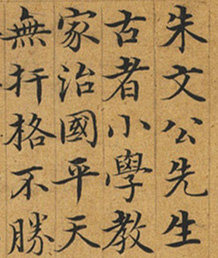 朱文公先生
古者小學教
家治國平天
無扞格不勝